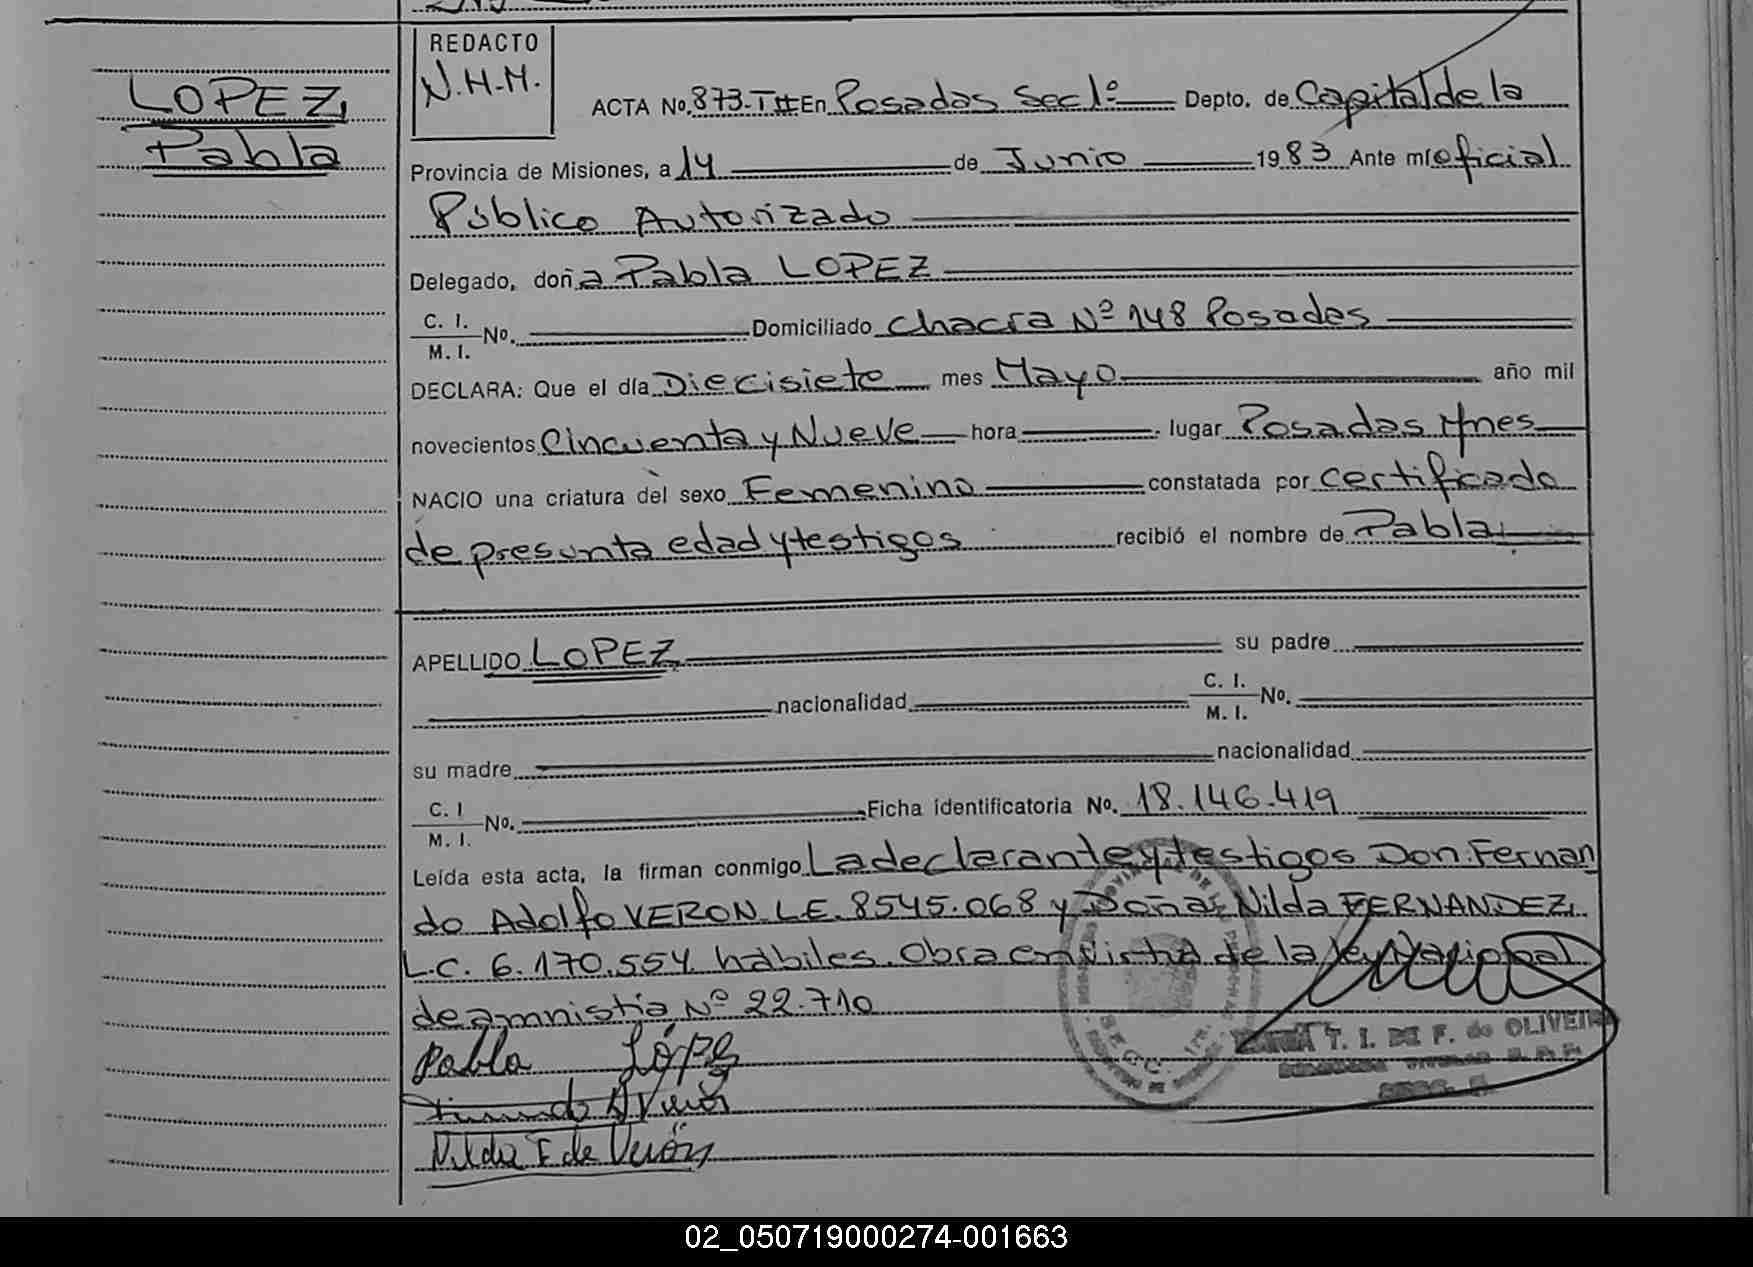 LOPEZ,
Pabla
REDACTO
N.H.M.
ACTA No. 873-T II En Posadas Secc 1º Depto. de Capital de la
Provincia de Misiones, a 14 de Junio 1983 Ante mí oficial
Público Autorizado
Delegado, doña Pabla LOPEZ
C. I.
M. I. No. Domiciliado Chacra Nº 148 Posadas
DECLARA: Que el día Diecisiete mes Mayo año mil
novecientos Cincuenta y Nueve hora lugar Posadas Mnes
NACIO una criatura del sexo Femenino constatada por certificado
de presunta edad y testigos recibió el nombre de Pabla
APELLIDO LOPEZ su padre
nacionalidad C. I.
M. I. No.
su madre nacionalidad
C. I
M. I. No. Ficha identificatoria No. 18.146.419
Leída esta acta, la firman conmigo La declarante y testigos Don Fernan
do Adolfo VERON L.E. 8545.068 y Doña Nilda FERNANDEZ,
L.C. 6.170.554 hábiles. Obra en virtud de la ley Nacional
de amnistía Nº 22.710
Pabla López
T. I. DE F. de OLIVEIRA
Nilda F de Verón
02_050719000274-001663